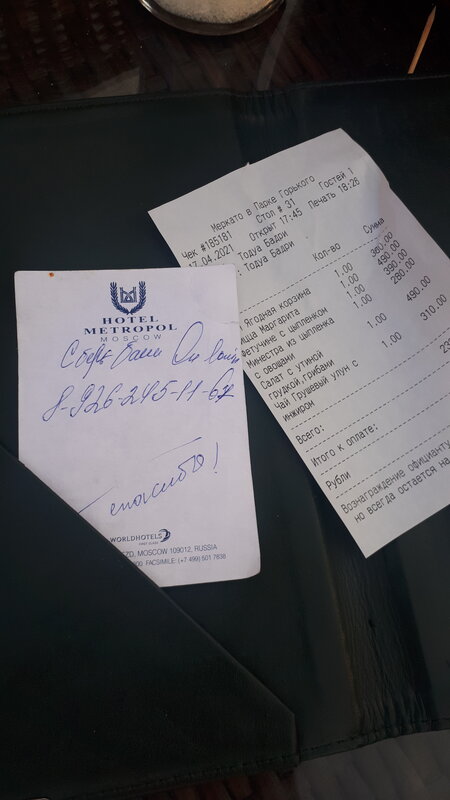 HOTEL
METROPOL
MOSCOW
Сбербанк Онлайн
8-926-245-11-67
спасибо!
WORLDHOTELS
FIRST CLASS
MOSCOW 109012, RUSSIA
FACSIMILE: (+7 499) 501 7838
Меркато в Парке Горького
Чек #185181 Стол # 31 Гостей 1
17.04.2021 Открыт 17:45 Печать 18:26
: Тодуа Бадри
: Тодуа Бадри
Кол-во Сумма
Ягодная корзина 1.00 360.00
Маргарита 1.00 490.00
с цыпленком 1.00 390.00
Минестра из цыпленка 1.00 280.00
с овощами
Салат с утиной 1.00 490.00
грудкой,грибами
Чай Грушевый улун с 1.00 310.00
инжиром
Всего:
Итого к оплате:
Рубли
Вознаграждение официанту
но всегда остается на